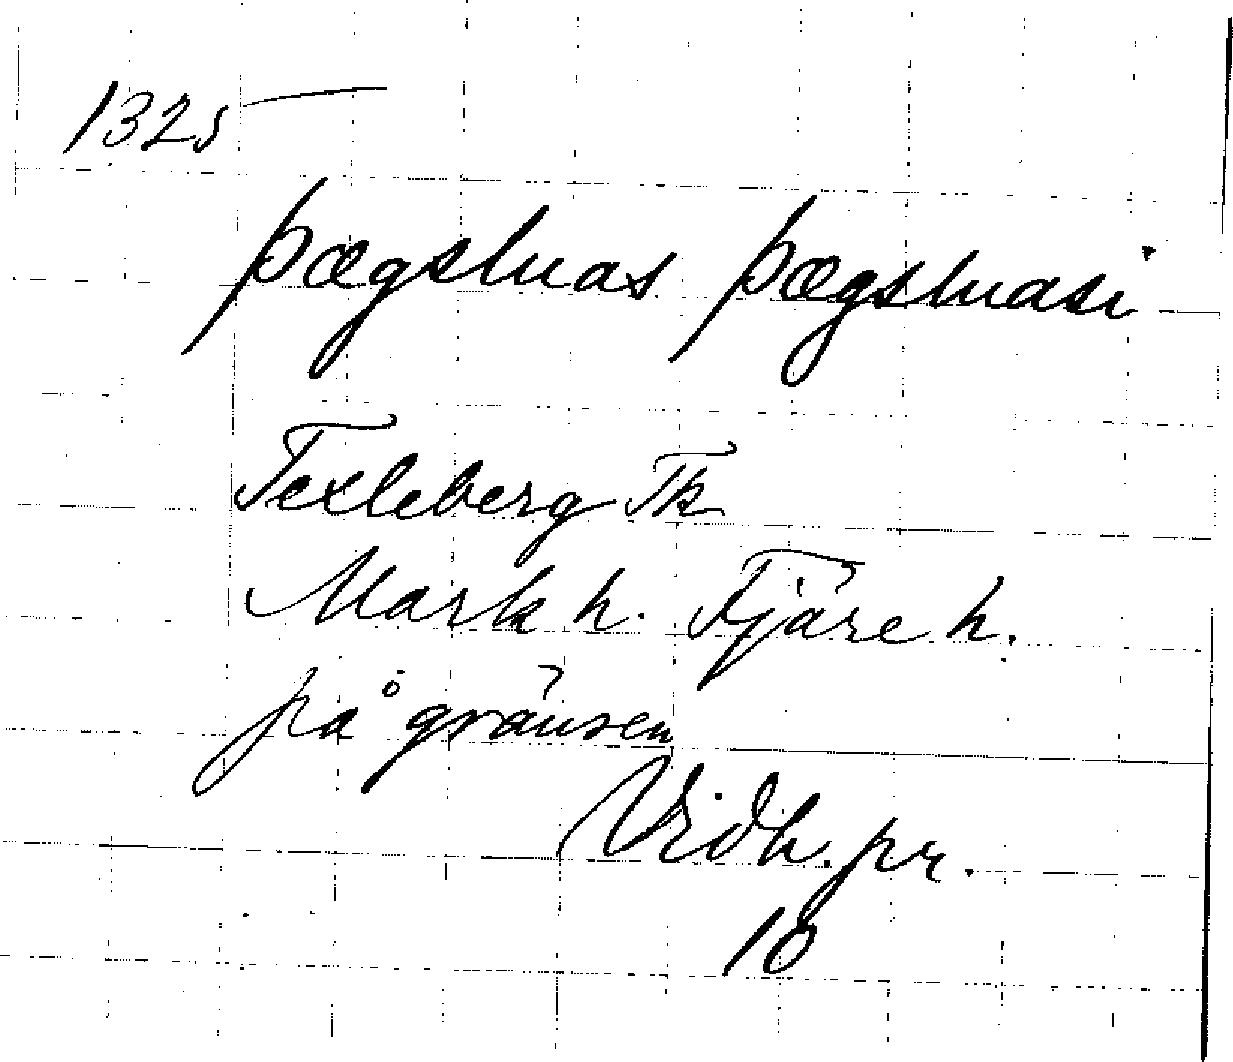 1325
þægsluas þægsluasi
Texleberg Tk
Mark h. Fjäre h.
på gränsen
Vidh. pr.
10